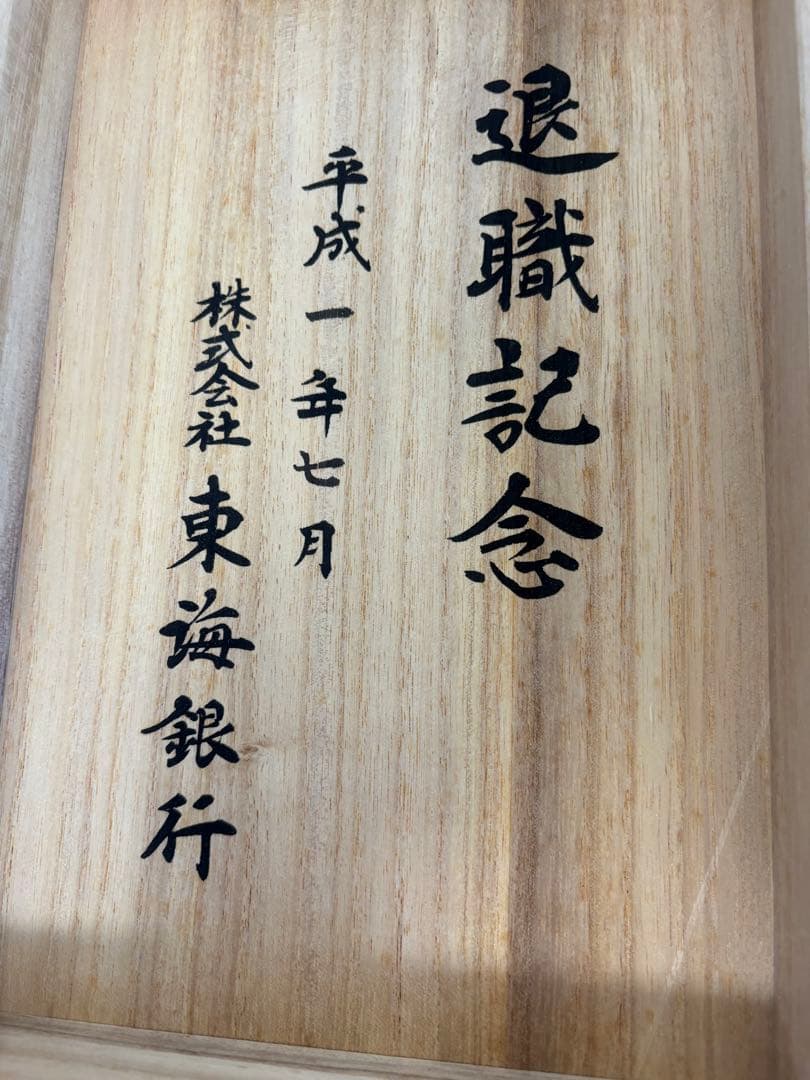 退職記念
平成一年七月
株式会社東海銀行